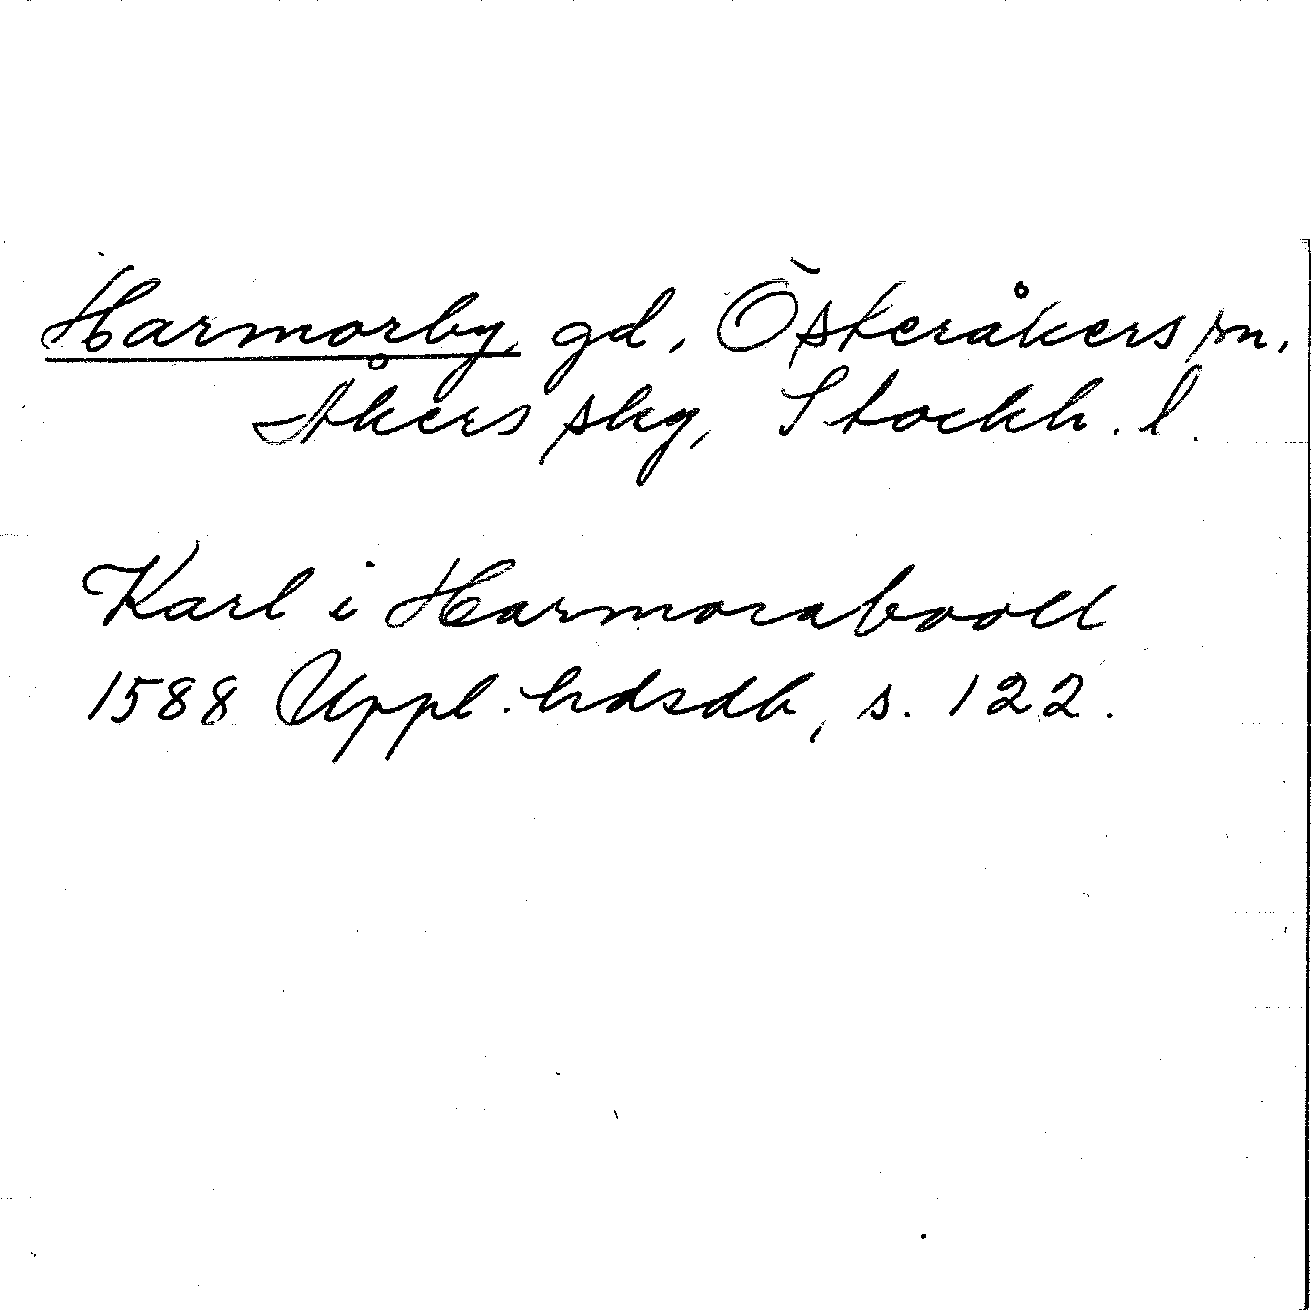 Harmorby gd, Österåkers sn,
Åkers skg, Stockh. l.
Karl i Harmorabooll
1588 Uppl. hdsdb, s. 122.